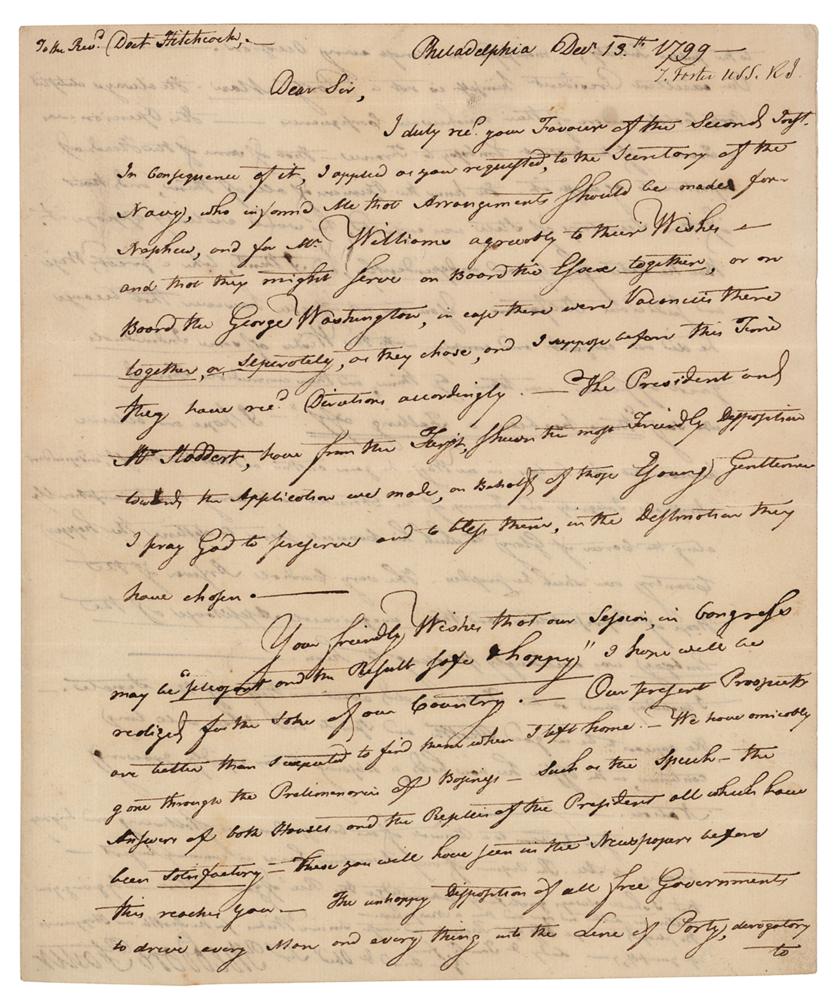 To the Rev.d Doct Hitchcock,—
Philadelphia Dec.r 13.th 1799—
T. Foster USS. R I.
Dear Sir,
I duly rec.d your Favour of the Second Inst.
In Consequence of it, I applied as you requested, to the Secretary of the
Navy, who informd Me that Arrangements Should be made for
Nephew, and for Mr Williams agreeably to their Wishes —
and that they might Serve on Board the Essex together, or on
Board the George Washington, in case there were Vacancies there
together, or Seperately, as they chose, and I suppose before this Time
they have rec.d Directions accordingly. — The President and
Mr Stoddert, have from the First, shewn the most Friendly Disposition
towards the Application we made, on Behalf of those Young Gentlemen
I pray God to preserve and to bless them, in the Destination they
have chosen.—
Your friendly Wishes that our Session, in Congress
may be "pleasant and the Result safe & happy" I hope will be
realized for the Sake of our Country. — Our present Prospects
are better than I expected to find them when I left home. — We have amicably
gone through the Preliminaries of Business — Such as the Speech — the
Answers of both Houses and the Replies of the President all which have
been Satisfactory — These you will have seen in the Newspapers before
this reaches you — The unhappy Disposition of all free Governments
to drive every Man and every thing into the Line of Party, derogatory
to